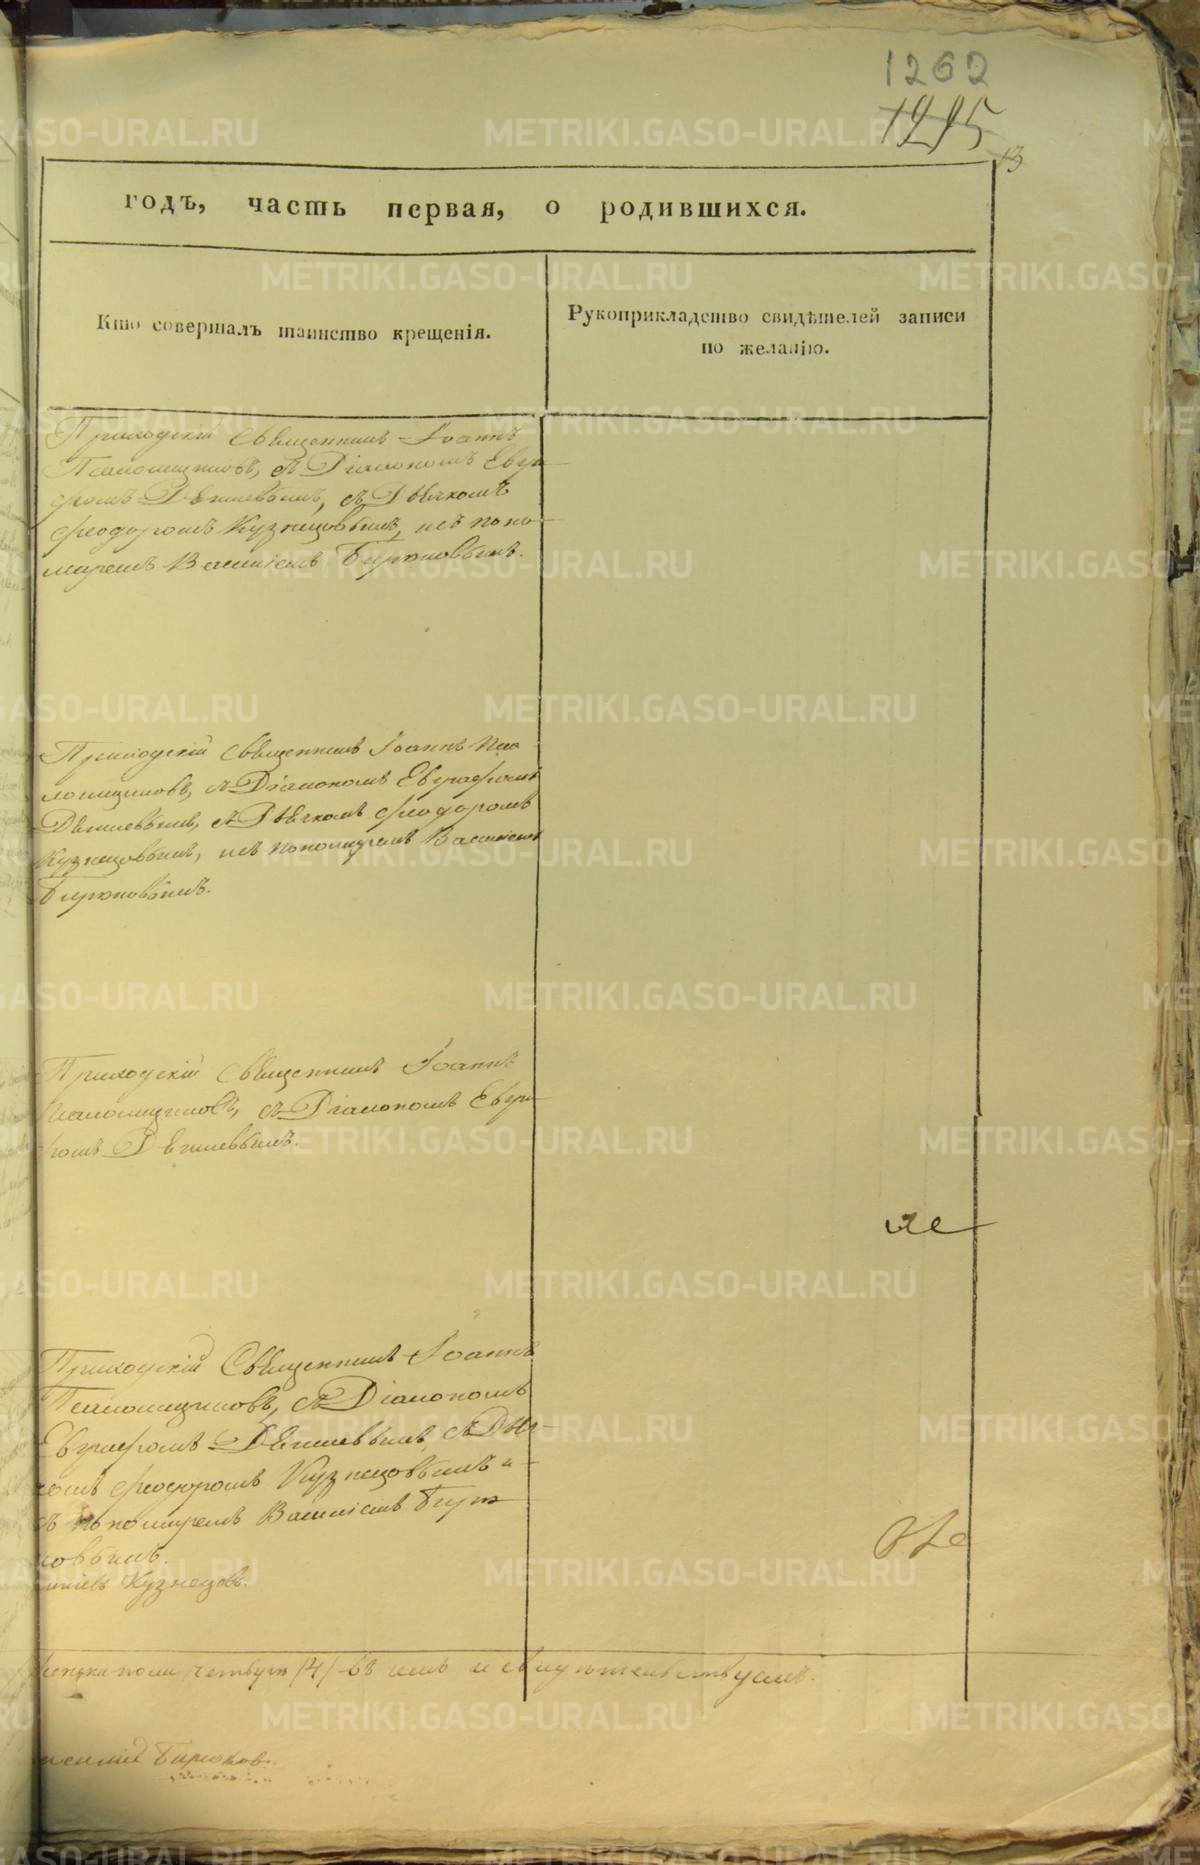 1262
1215
13
годъ, часть первая, о родившихся.
Кто совершалъ таинство крещенія.
Рукоприкладство свидѣтелей записи
по желанію.
Приходскій Священникъ Іоаннъ
Псаломщиковъ, съ Діакономъ Евгра-
фомъ Дягилевымъ, съ Дьячкомъ
Феодоромъ Кузнецовымъ, и съ поно-
маремъ Василіемъ Бирюковымъ.
Приходскій Священникъ Іоаннъ Пса
ломщиковъ, съ Діакономъ Евграфомъ
Дягилевымъ, съ Дьячкомъ Феодоромъ
Кузнецовымъ, и съ пономаремъ Василіемъ
Бирюковымъ.
Приходскій Священникъ Іоаннъ
Псаломщиковъ, съ Діакономъ Евгра-
фомъ Дягилевымъ.
Приходскій Священникъ Іоаннъ
Псаломщиковъ, съ Діакономъ
Евграфомъ Дягилевымъ, съ Дьяч-
комъ Феодоромъ Кузнецовымъ и
съ пономаремъ Василіемъ Бирю
ковымъ.
Кузнецовъ.
пола четвуро /4/ въ чемъ и свидѣтельствуемъ.
Василій Бирюков.
METRIKI.GASO-URAL.RU